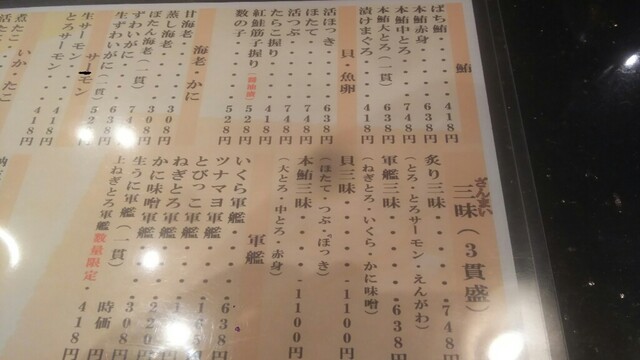 鮪
ばち鮪・・・・・418円
本鮪赤身・・・・638円
本鮪中とろ・・・748円
本鮪大とろ(一貫)・・418円
漬けまぐろ・・・418円
貝・魚卵
活ほっき・・・・638円
ほたて・・・・・748円
活つぶ・・・・・748円
たらこ握り・・・418円
紅鮭筋子握り(醤油漬)528円
数の子・・・・・528円
海老・かに
甘海老・・・・
蒸し海老・・・・308円
ぼたん海老(一貫)・・308円
ずわいがに・・・748円
生ずわいがに・・638円
生ずわいがに(一貫)528円
サーモン
生サーモン・・・418円
とろサーモン・・418円
いか・たこ
煮たこ・・
活たこ
ざんまい
三昧(3貫盛)
炙り三昧・・・・748円
(とろ・とろサーモン・えんがわ)
軍艦三昧・・・・638円
(ねぎとろ・いくら・かに味噌)
貝三昧・・・・・1100円
(ほたて・つぶ・ほっき)
本鮪三昧・・・・1100円
(大とろ・中とろ・赤身)
軍艦
いくら軍艦・・・638円
ツナマヨ軍艦・・165円
とびっこ軍艦・・
ねぎとろ軍艦・・220円
かに味噌軍艦・・308円
生うに軍艦・・・時価
上ねぎとろ軍艦(一貫)数量限定・418円